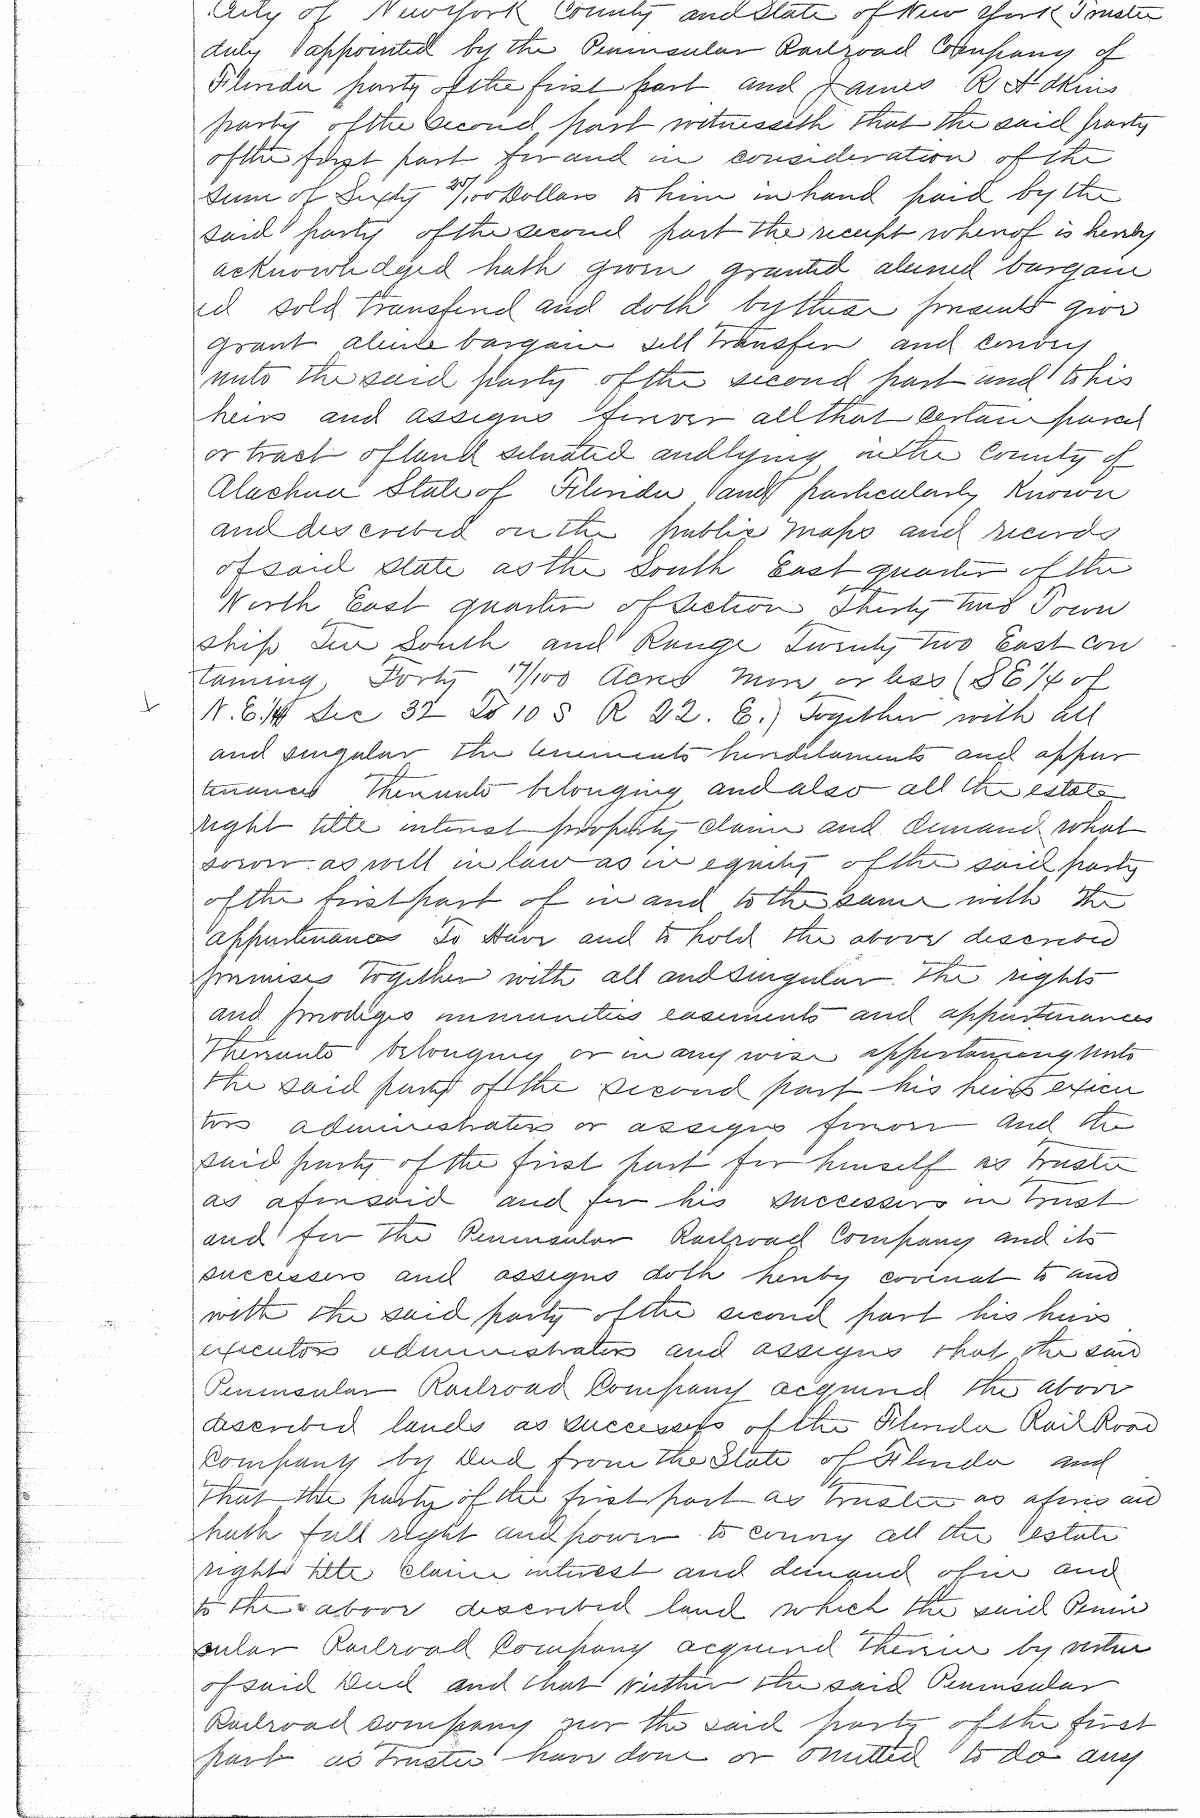 City of New York County and State of New York Trustee
duly appointed by the Peninsular Railroad Company of
Florida party of the first part and James R Adkins
party of the second part witnesseth that the said party
of the first part for and in consideration of the
sum of Sixty 25/100 Dollars to him in hand paid by the
said party of the second part the receipt whereof is hereby
acknowledged hath given granted aliened bargain
ed sold transfered and doth by these presents give
grant aliene bargain sell transfer and convey
unto the said party of the second part and to his
heirs and assigns forever all that certain parcel
or tract of land situated and lying in the County of
Alachua State of Florida and particularly known
and discrebed on the public maps and records
of said state as the South East quarter of the
North East quarter of Section Thirty two Town
ship Ten South and Range Twenty two East con
taining Forty 17/100 Acres more or less (SE 1/4 of
N.E. 1/4 Sec 32 To 10 S R 22. E.) Together with all
and singular the tenements hereditaments and appur
tenances thereunto belonging and also all the estate
right title interest property claim and demand what
soever as well in law as in equity of the said party
of the first part of in and to the same with the
appurtenances To Have and to hold the above described
premises together with all and singular the rights
and priveliges immunities easements and appurtenances
Thereunto belonging or in any wise appertaining unto
the said party of the second part his heirs execu
tors administrators or assigns forever And the
said party of the first part for himself as Trustee
as aforesaid and for his successors in Trust
and for the Peninsular Railroad Company and its
successors and assigns doth hereby covenat to and
with the said party of the second part his heirs
executors administrators and assigns that the said
Peninsular Railroad Company acquired the above
described lands as successors of the Florida Rail Road
Company by Deed from the State of Florida and
that the party of the first part as Trustee as aforesaid
hath full right and power to convey all the estate
right title claim interest and demand of in and
to the above described land which the said Penin
sular Railroad Company acquired therein by virtue
of said Deed and that Neither the said Peninsular
Railroad company nor the said party of the first
part as Trustee have done or omitted to do any